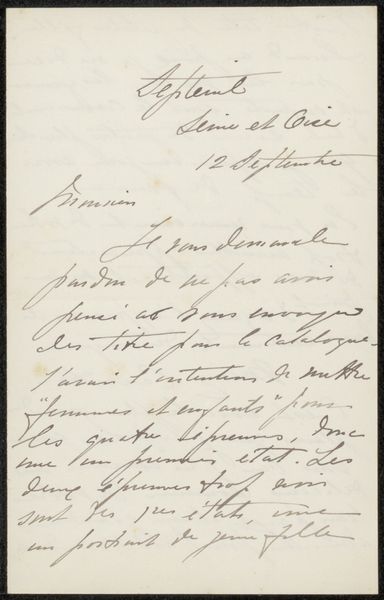 Septeuil
Seine et Oise
12 Septembre
Monsieur
Je vous demande
pardon de ne pas avoir
pensé à vous envoyer
des titre pour le catalogue
J'avais l'intention de mettre
"femmes et enfants" pour
les quatre épreuves, donc
une un premier état. Les
deux épreuves
sont des 1res états, une
un portrait de jeune fille